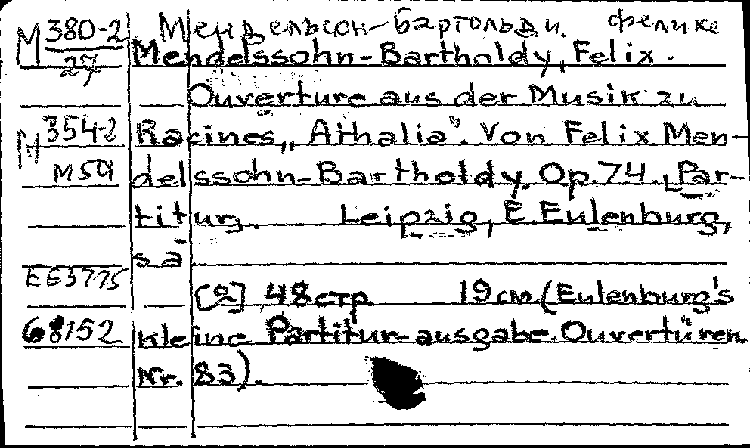 М 380-2 Мендельсон-Бартольди. Феликс
27 Mendelssohn-Bartholdy, Felix.
Ouverture aus der Musik zu
М 354-2 Racines „Athalia". Von Felix Men-
М 59 delssohn-Bartholdy. Op. 74. [Par-
titur]. Leipzig, E. Eulenburg,
s a
E63775 [2] 48 стр 19 см (Eulenburg's
68152 kleine Partitur-ausgabe. Ouvertüren
Nr. 83).